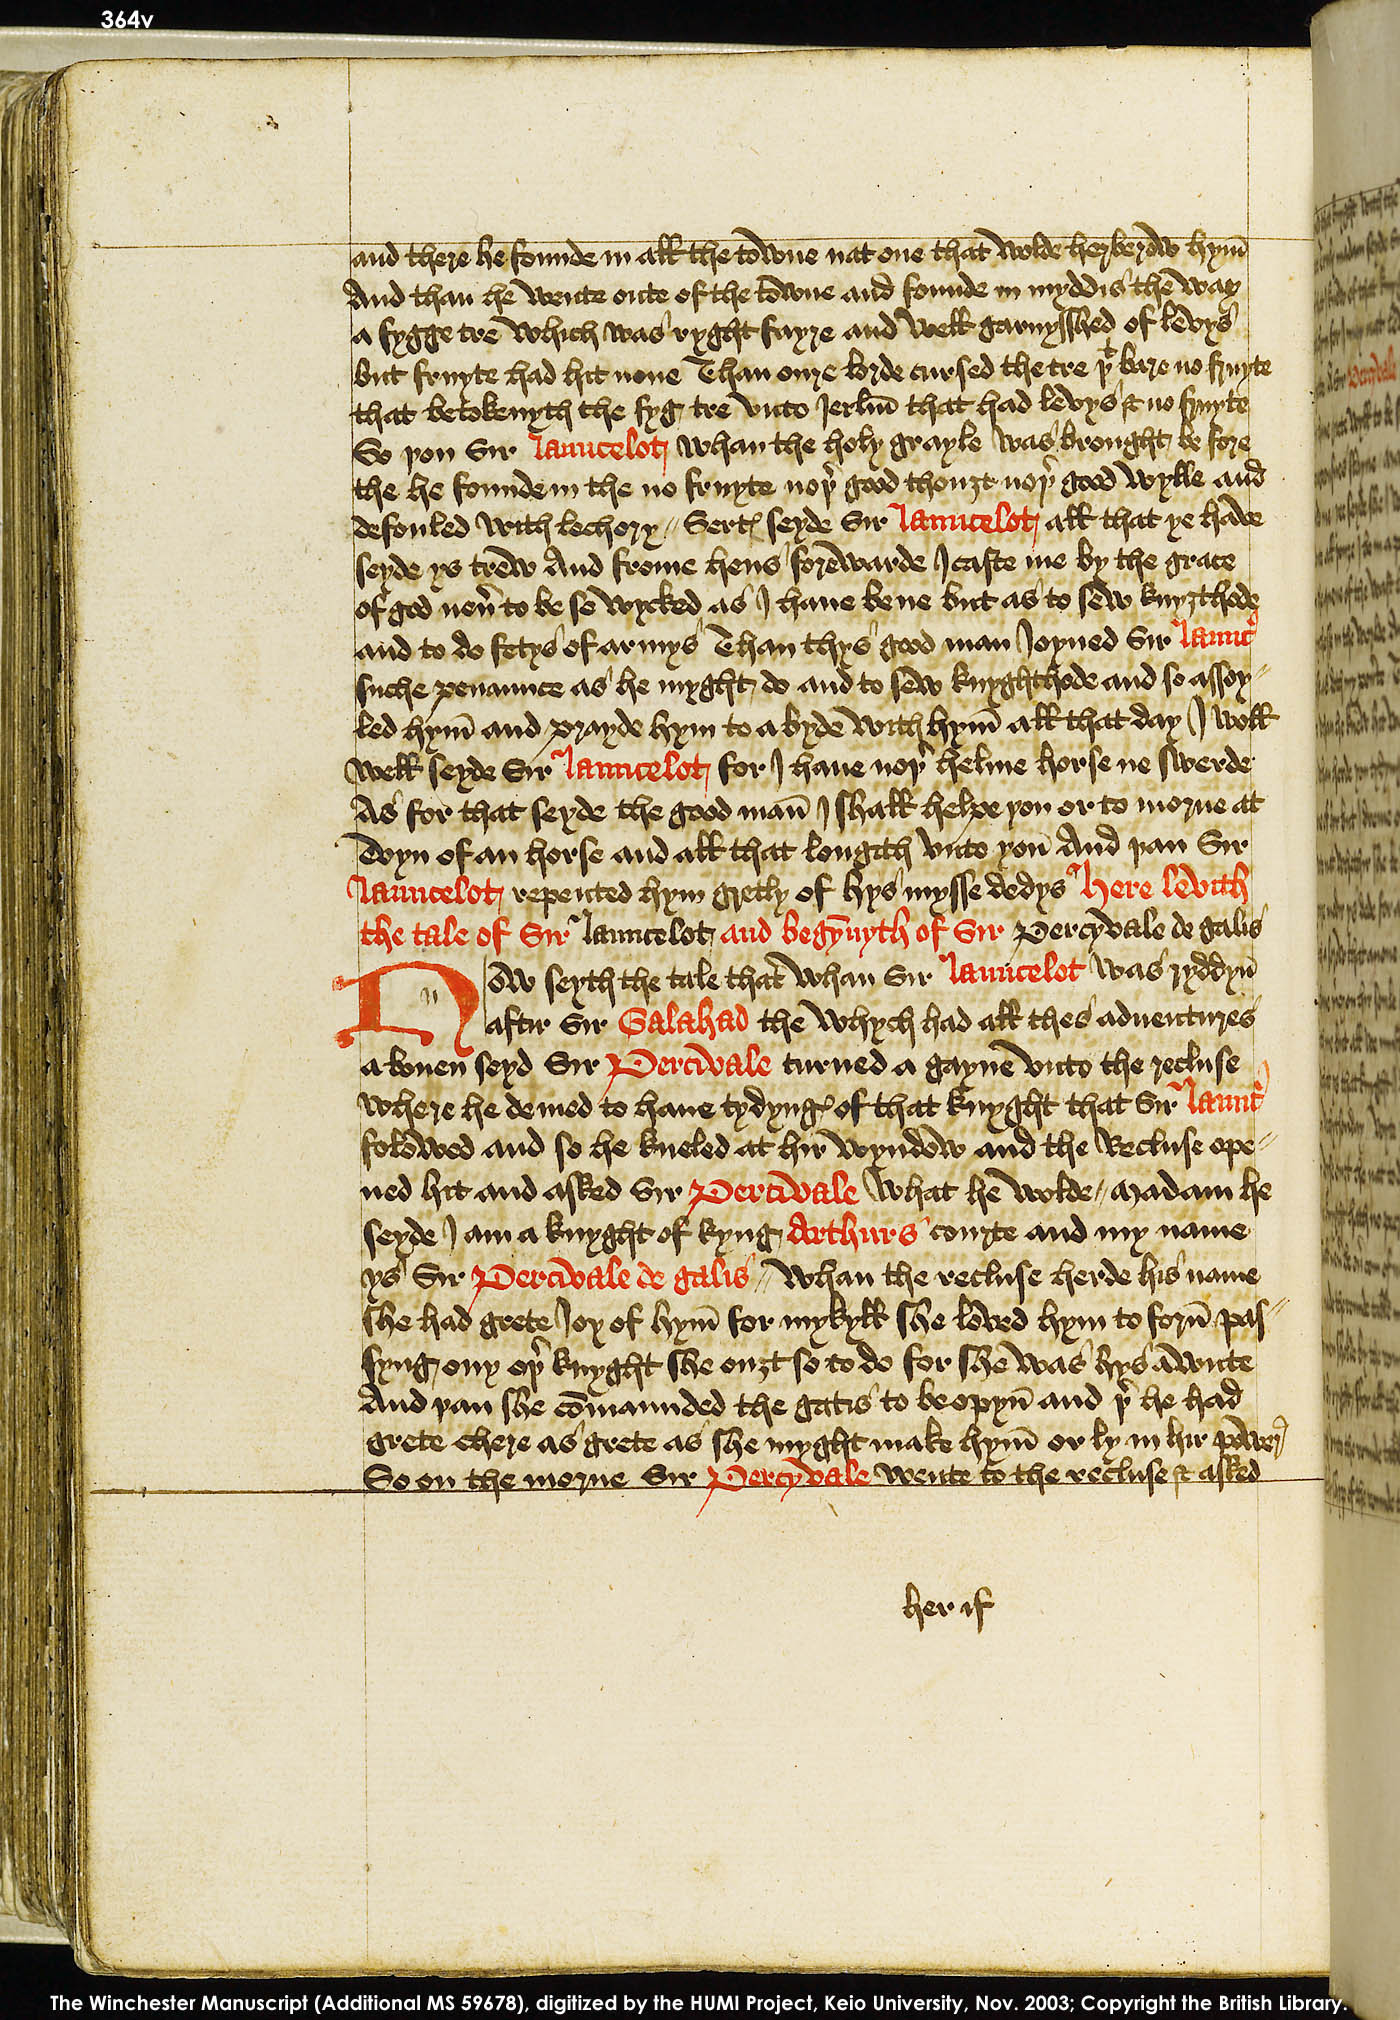 364v
and there he founde in all the towne nat one that wolde herberow hym̄
And than he wente oute of the towne and founde in myddis the way
a fygge tre which was ryght fayre and well garnysshed of levys
but fruyte had hit none Than oure lorde cursed the tre þᵗ bare no fruyte
that betokenyth the fyg tre vnto Jerlm̄ that had levys & no fruyte
So þou Sir Launcelot whan the holy grayle was brought be fore
the he founde in the no fruyte noþ̛ good thouȝt noþ̛ good wylle and
defouled with lechory // Sertꝭ seyde Sir Launcelot all that ye have
seyde ys trew And frome hens forewarde I caste me by the grace
of god neu̾ to be so wycked as I haue bene but as to sew knyȝthode
and to do fetys of armys Than thys good man Joyned Sir Launc̾
suche penaunce as he myght do and to sew knyghthode and so assoy//
led hym̄ and prayde hym to a byde with hym̄ all that day I woll
well seyde Sir Launcelot for I haue noþ̛ helme horse ne swerde
As for that seyde the good man̄ I shall helpe you or to morne at
evyn of an horse and all that longith vnto you And þan Sir
Launcelot repented hym gretly of hys mysse dedys Here levith
the tale of Sir Launcelot and begȳnyth of Sir Percyvale de galis
Now seyth the tale that whan Sir Launcelot was ryddyn̄
aftir Sir Galahad the whych had all thes aduentures
a boven seyd Sir Percivale turned a gayne vnto the recluse
where he demed to haue tydyngꝭ of that knyght that Sir Launc̾
folowed and so he kneled at hir wyndow and the Recluse ope//
ned hit and asked Sir Percivale what he wolde // Madam he
seyde I am a knyght of kyng Arthurs courte and my name
ys Sir Percivale de galis // whan the recluse herde his name
she had grete Joy of hym̄ for mykyll she loved hym to forn̄ pas//
syng ony oþ̛ knyght she ouȝt so to do for she was hys awnte
And þan she cōmaunded the gatis to be opyn̄ and þ̛ he had
grete chere as grete as she myght make hym̄ or ly in hir power
So on the morne Sir Percyvale wente to the recluse & asked
her if
The Winchester Manuscript (Additional MS 59678), digitized by the HUMI Project, Keio University, Nov. 2003; Copyright the British Library.